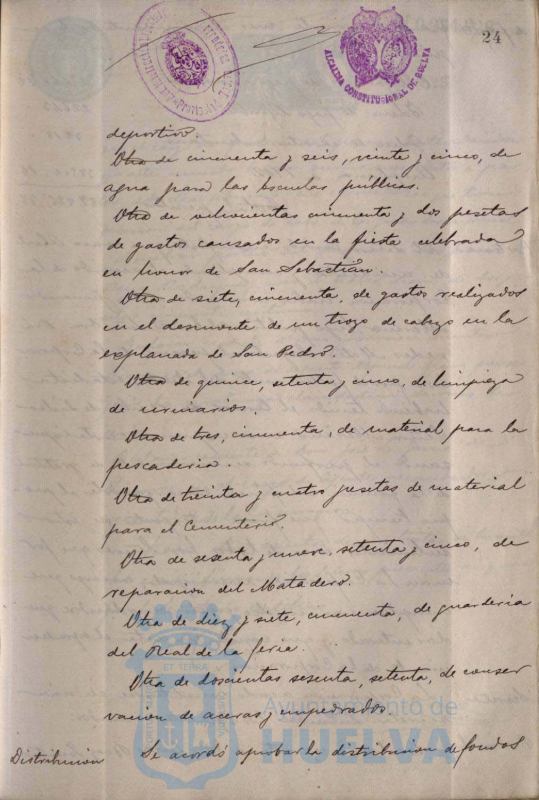 24
ALCALDIA CONSTITUCIONAL DE HUELVA
deportivo.
Otra de cincuenta y seis, veinte y cinco, de
agua para las Escuelas públicas.
Otra de ochocientas cincuenta y dos pesetas
de gastos causados en la fiesta celebrada
en honor de San Sebastián.
Otra de siete, cincuenta, de gastos realizados
en el desmonte de un trozo de cabezo en la
explanada de San Pedro.
Otra de quince, setenta y cinco, de limpieza
de urinarios.
Otra de tres, cincuenta, de material para la
pescaderia.
Otra de treinta y cuatro pesetas de material
para el Cementerio.
Otra de sesenta y nueve, setenta y cinco, de
reparacion del Matadero.
Otra de diez y siete, cincuenta, de guarderia
del Real de la feria.
Otra de doscientas sesenta, setenta, de conser
vacion de aceras y empedrados.
Distribución Se acordó aprobar la distribucion de fondos
ET TERRA
Ayuntamiento de
HUELVA